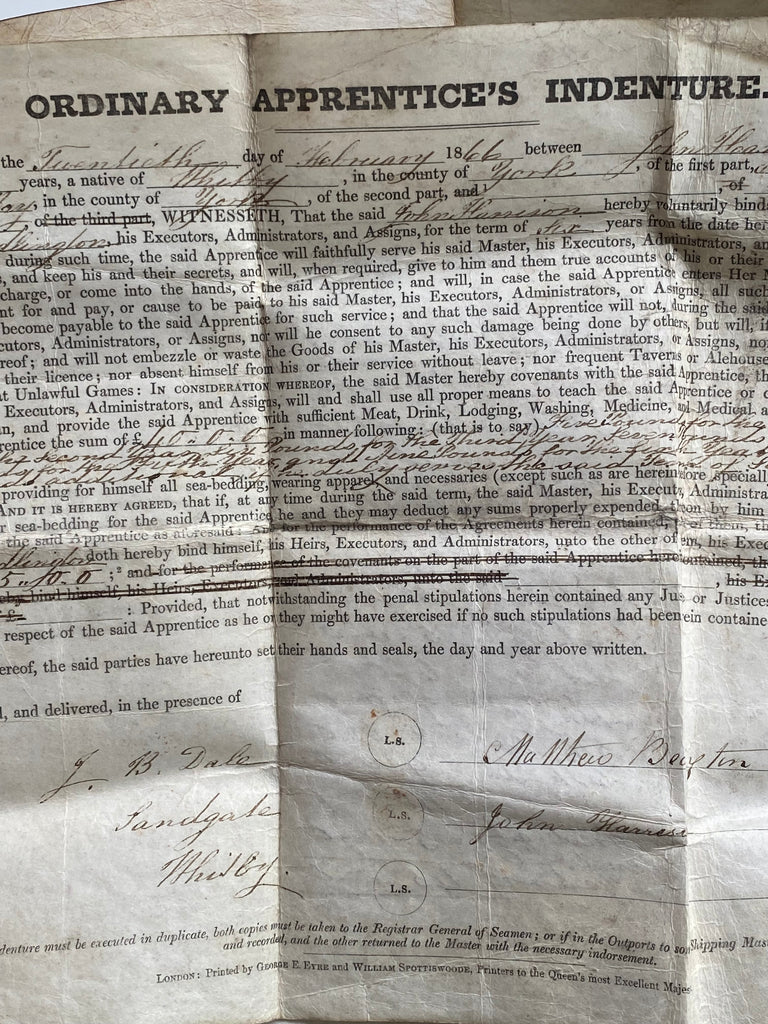 ORDINARY APPRENTICE'S INDENTURE.
the Twentieth day of February 1866 between John Har
years, a native of Whitby, in the county of York, of the first part,
Bay, in the county of York, of the second part, and, of
of the third part, WITNESSETH, That the said John Harrison hereby voluntarily binds
his Executors, Administrators, and Assigns, for the term of six years from the date her
during such time, the said Apprentice will faithfully serve his said Master, his Executors, Administrators, an
s, and keep his and their secrets, and will, when required, give to him and them true accounts of his or their
charge, or come into the hands, of the said Apprentice; and will, in case the said Apprentice enters Her M
nt for and pay, or cause to be paid, to his said Master, his Executors, Administrators, or Assigns, all such
become payable to the said Apprentice for such service; and that the said Apprentice will not, during the said
cutors, Administrators, or Assigns, nor will he consent to any such damage being done by others, but will, if
reof; and will not embezzle or waste the Goods of his Master, his Executors, Administrators, or Assigns, no
their licence; nor absent himself from his or their service without leave; nor frequent Taverns or Alehouse
at Unlawful Games: IN CONSIDERATION WHEREOF, the said Master hereby covenants with the said Apprentice, th
Executors, Administrators, and Assigns, will and shall use all proper means to teach the said Apprentice or c
n, and provide the said Apprentice with sufficient Meat, Drink, Lodging, Washing, Medicine, and Medical a
rentice the sum of £ in manner following: (that is to say) Five Pounds for the
the second Year, Six Pounds for the third Year, Seven Pounds
for the fifth Year, and Nine Pounds for the
providing for himself all sea-bedding, wearing apparel, and necessaries (except such as are hereinbefore speciall
AND IT IS HEREBY AGREED, that if, at any time during the said term, the said Master, his Executors, Administra
r sea-bedding for the said Apprentice, he and they may deduct any sums properly expended thereon by him
the said Apprentice as aforesaid: And for the performance of the Agreements herein contained, of them, th
doth hereby bind himself, his Heirs, Executors, and Administrators, unto the other of them, his Exec
;² and for the performance of the covenants on the part of the said Apprentice herein contained, th
eby bind himself, his Heirs, Executors, and Administrators, unto the said, his E
£ : Provided, that notwithstanding the penal stipulations herein contained any Justice or Justices
respect of the said Apprentice as he or they might have exercised if no such stipulations had been herein containe
ereof, the said parties have hereunto set their hands and seals, the day and year above written.
d, and delivered, in the presence of
L.S.
Matthew
J. B. Dale
Sandgate
L.S.
John Harrison
Whitby.
L.S.
ndenture must be executed in duplicate, both copies must be taken to the Registrar General of Seamen; or if in the Outports to Shipping Mas
and recorded, and the other returned to the Master with the necessary indorsement.
LONDON: Printed by GEORGE E. EYRE and WILLIAM SPOTTISWOODE, Printers to the Queen's most Excellent Majes